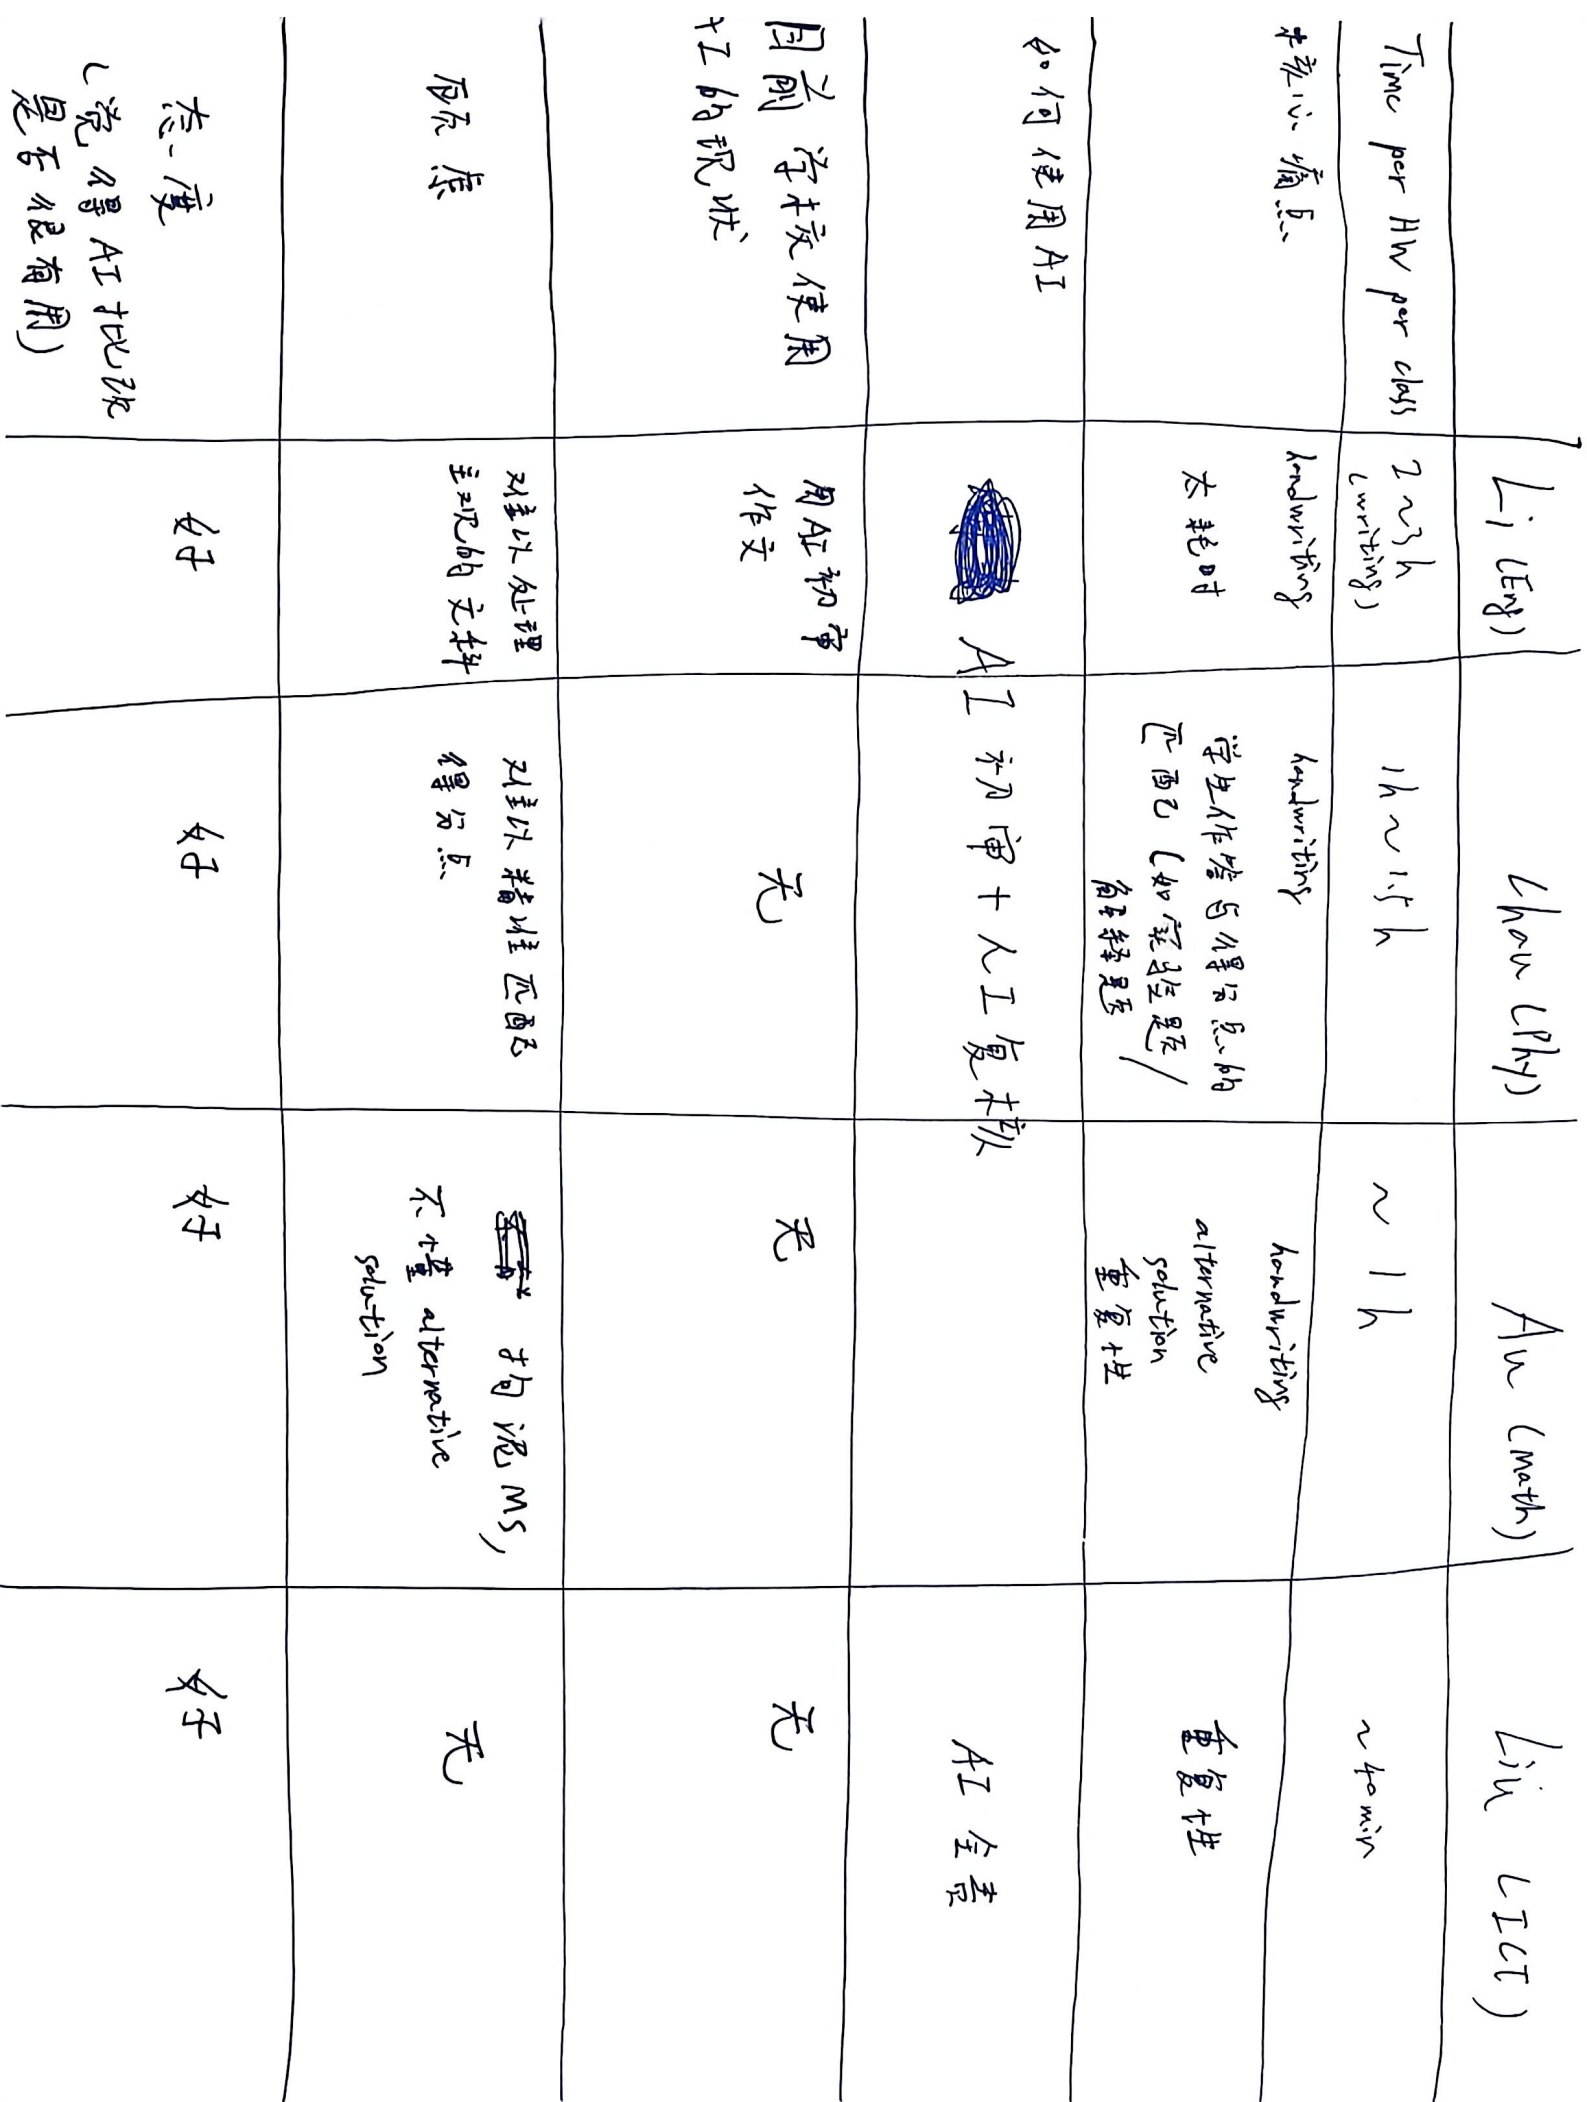 Li (Eng)
Chau (Phy)
Au (Math)
Liu (ICT)
Time per HW per class
2~3h
(writing)
1h~1.5h
~1h
~40min
核心痛点
handwriting
太耗时
handwriting
学生作答与得分点的
匹配 (如实验题/
解释题
handwriting
alternative
solution
重复性
重复性
如何使用AI
AI初审+人工复核
AI全责
目前学校使用
AI的现状
用AI初审
作文
无
无
无
顾虑
难以处理
主观的文科
难以精准匹配
得分点
拘泥MS,
不懂alternative
solution
无
态度
(觉得AI批改
是否很有用)
好
好
好
好